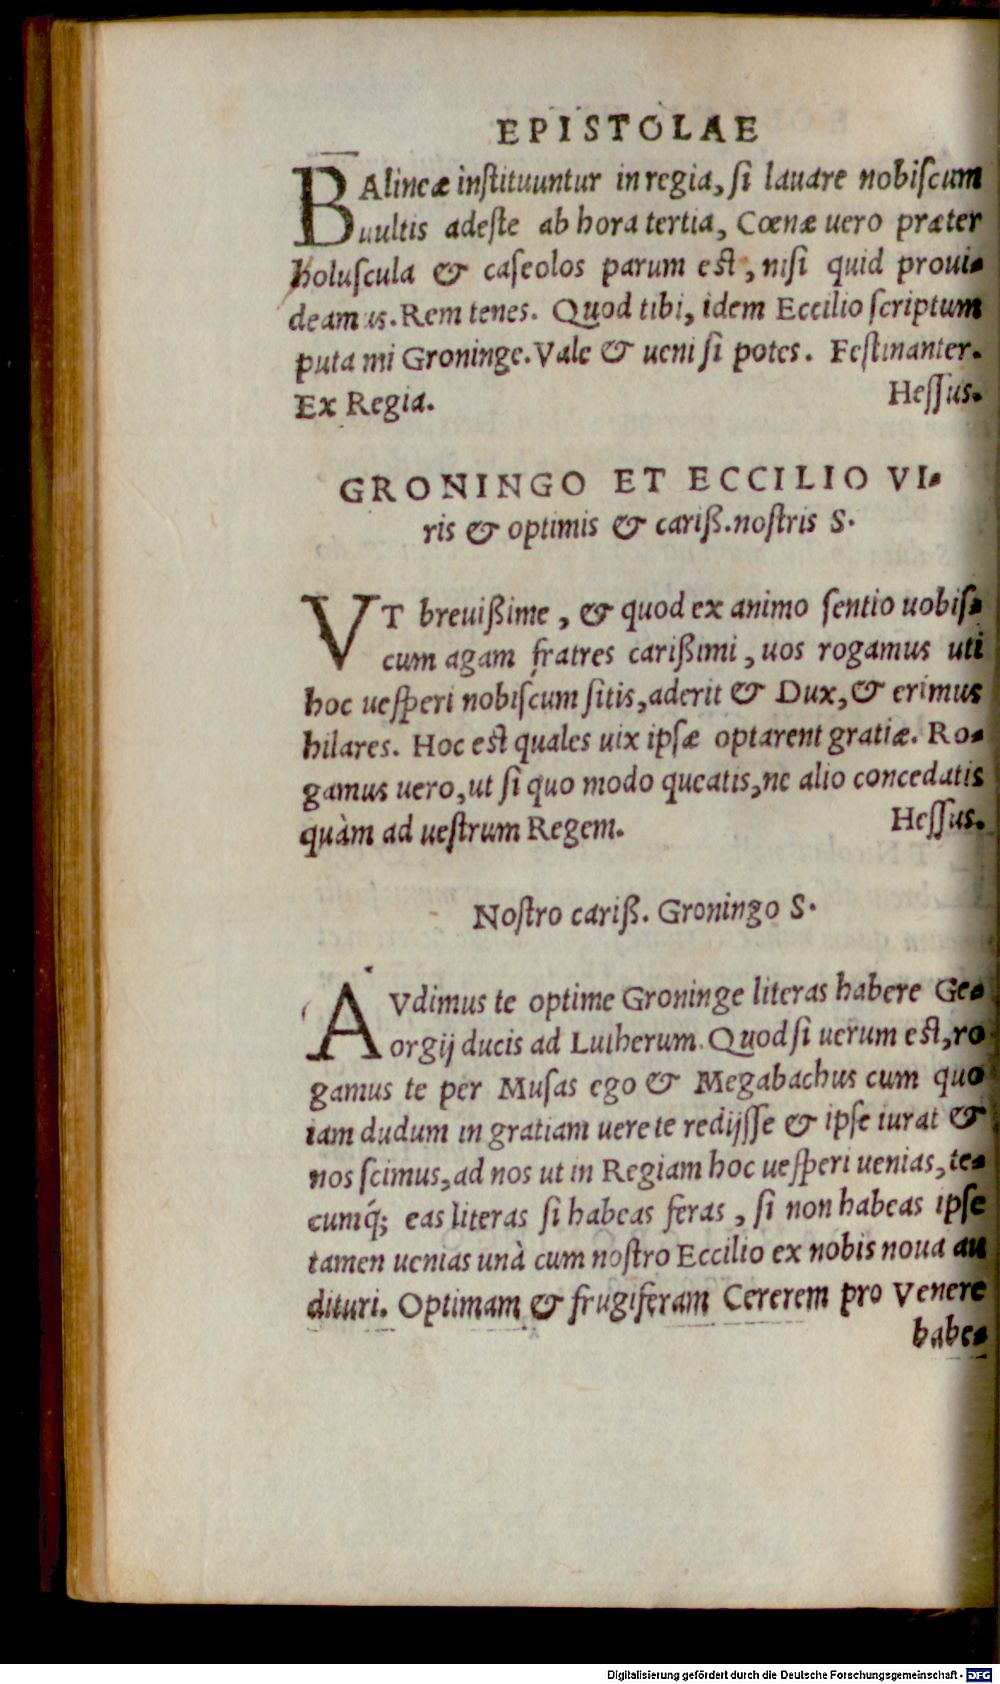 EPISTOLAE
BAlineæ instituuntur in regia, si lauare nobiscum
uultis adeste ab hora tertia, Cœnæ uero præter
holuscula & caseolos parum est, nisi quid proui-
deamus. Rem tenes. Quod tibi, idem Eccilio scriptum
puta mi Groninge. Vale & ueni si potes. Festinanter.
Ex Regia. Hessus.
GRONINGO ET ECCILIO VI-
ris & optimis & cariß. nostris S.
VT breuißime, & quod ex animo sentio uobis-
cum agam fratres carißimi, uos rogamus uti
hoc uesperi nobiscum sitis, aderit & Dux, & erimus
hilares. Hoc est quales uix ipsæ optarent gratiæ. Ro-
gamus uero, ut si quo modo queatis, ne alio concedatis
quàm ad uestrum Regem. Hessus.
Nostro cariß. Groningo S.
AVdimus te optime Groninge literas habere Ge-
orgij ducis ad Lutherum. Quod si uerum est, ro
gamus te per Musas ego & Megabachus cum quo
iam dudum in gratiam uere te redijsse & ipse iurat &
nos scimus, ad nos ut in Regiam hoc uesperi uenias, te-
cumq́; eas literas si habeas feras, si non habeas ipse
tamen uenias unà cum nostro Eccilio ex nobis noua au
dituri. Optimam & frugiferam Cererem pro Venere
habe-
Digitalisierung gefördert durch die Deutsche Forschungsgemeinschaft - DFG